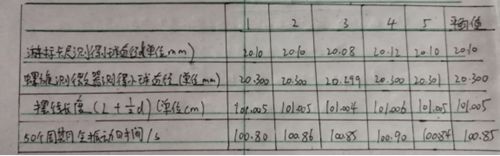 1 2 3 4 5 平均值
游标卡尺测得小球直径(单位mm) 20.10 20.10 20.08 20.12 20.10 20.10
螺旋测微器测得小球直径(单位mm) 20.300 20.300 20.299 20.300 20.301 20.300
摆线长度(L+½d)(单位cm) 101.005 101.005 101.004 101.006 101.005 101.005
50个周期全振动时间/s 100.80 100.86 100.85 100.90 100.84 100.85